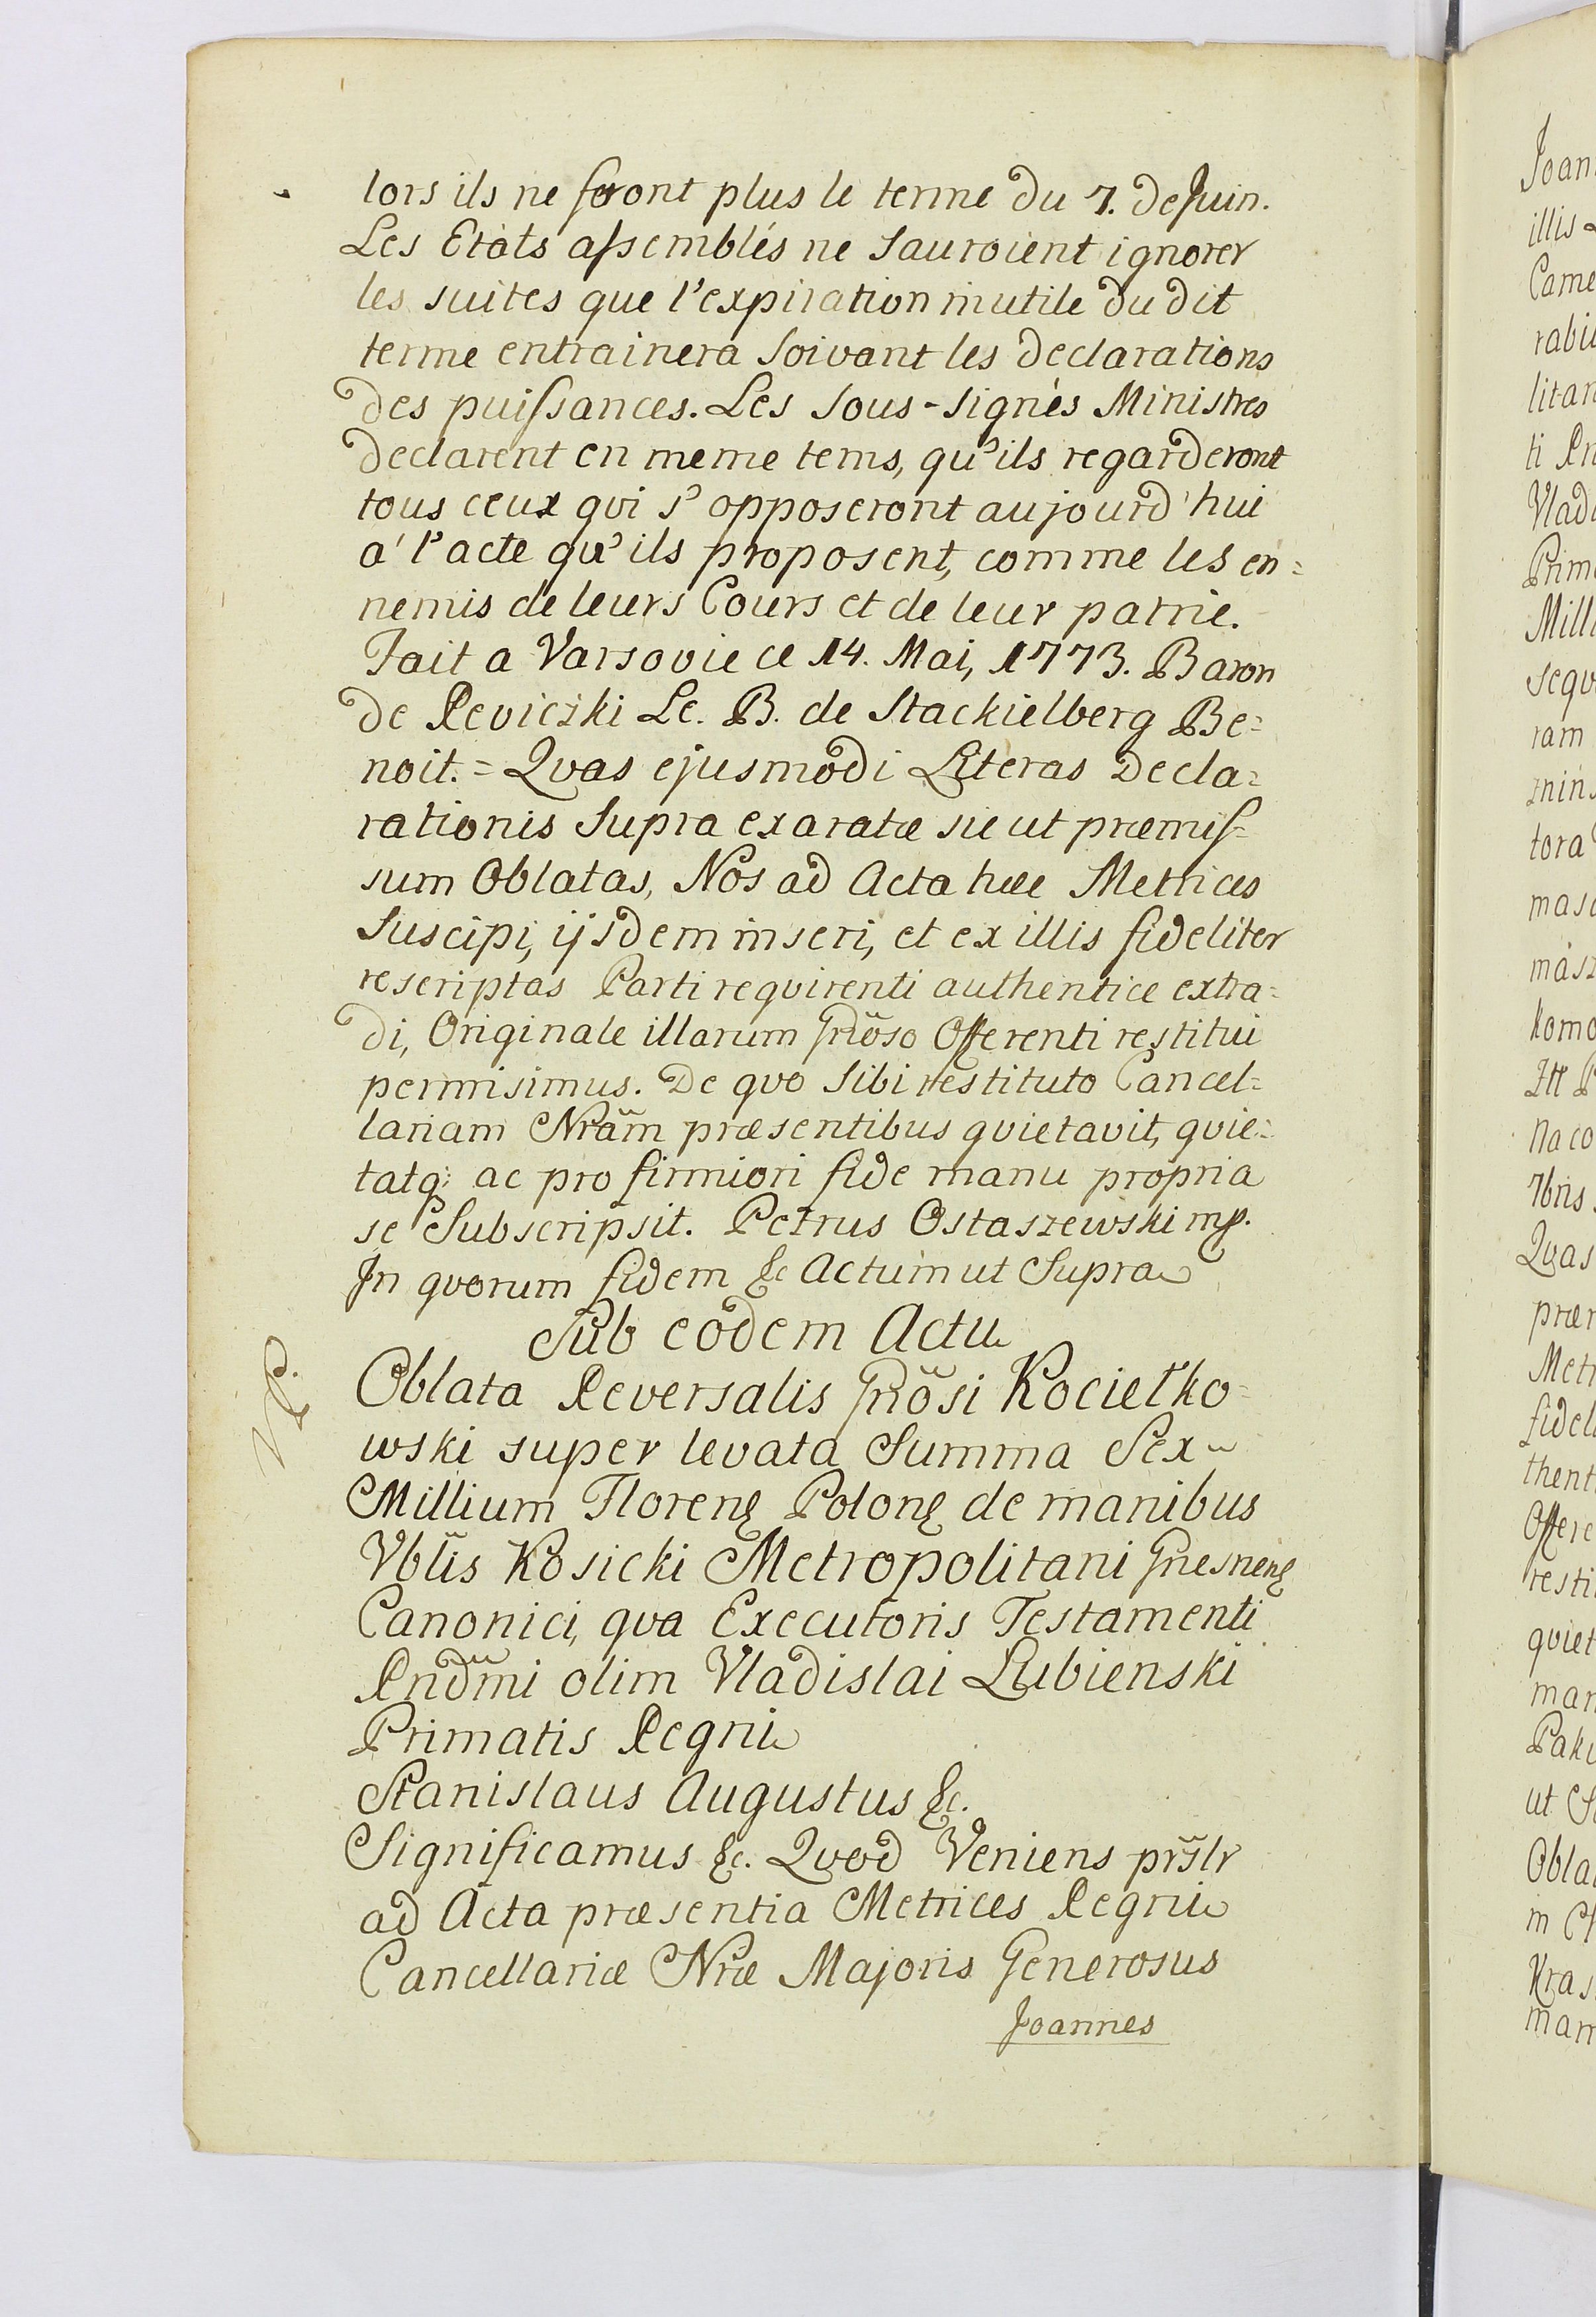 lors ils ne feront plus le terme du 7. de Juin.
Les Etàts assemblés ne sauroient ignorer
les suites que l'expiration inutile du dit
terme entrainera soivant les declarations
des puissances. Les sous-signés Ministres
declarent en meme tems, qu'ils regarderont
tous ceux qvi s'opposeront aujourd'hui
a' l'acte qu'ils proposent, comme les en=
nemis de leurs Cours et de leur patrie.
Fait a Varsovie ce 14. Mai, 1773. Baron
de Reviczki Le. B. de Stackielberg Be=
noit. = Qvas ejusmodi Literas Decla=
rationis supra exaratæ sic ut præmis=
sum Oblatas, Nos ad Acta hæc Metrices
suscipi, ijsdem inseri, et ex illis fideliter
rescriptas Parti reqvirenti authentice extra=
di, Originale illarum Gñoso Offerenti restitui
permisimus. De qvo sibi restituto Cancel=
lariam Nrãm præsentibus qvietavit, qvie=
tatq; ac pro firmiori fide manu propria
se Subscripsit. Petrus Ostaszewski mp.
In qvorum fidem &c Actum ut Supra
Sub eodem Actu
NP.
Oblata Reversalis Gñosi Kociełko=
wski super levata Summa Sex
Millium Floren̄ Polon̄ de manibus
Vblis Kosicki Metropolitani Gnesnen̄
Canonici, qva Executoris Testamenti
Rndm̃i olim Vladislai Lubienski
Primatis Regni
Stanislaus Augustus &c.
Significamus &c. Qvod Veniens prs̃lr
ad Acta præsentia Metrices Regni
Cancellariæ Nræ Majoris Generosus
Joannes
Joan
illis
Came
rabi
litan
ti Rn
Vlad
Prim
Mill
seqv
ram
znin
tora
masc
mász
komo
Na co
7bris
Qvas
præm
Metr
fidel
thent
Offere
resti
qviet
man
Paki
ut S
Obla
in C
Kras
mam